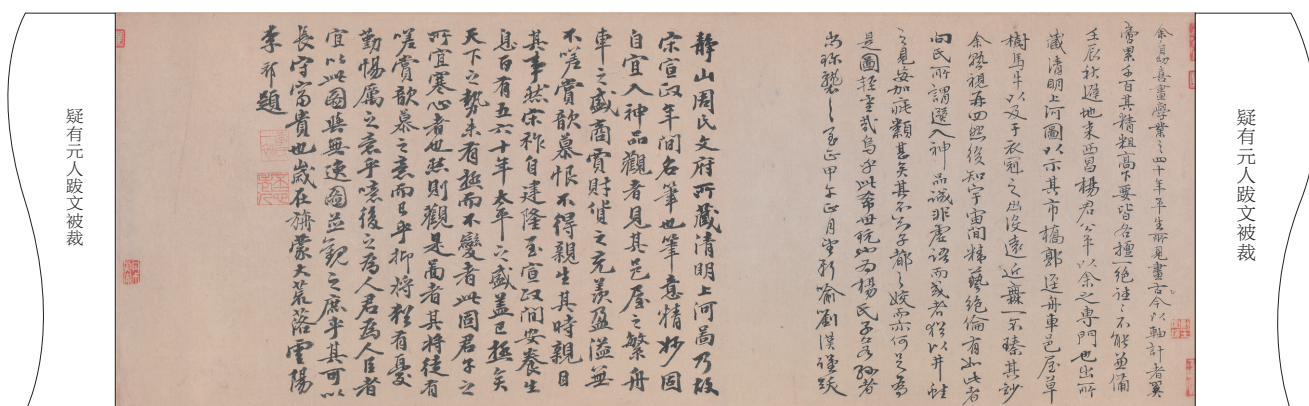 疑有元人跋文被裁
余自幼喜畫學業之四十年平生所見畫古今以軸計者奚
啻累千百其精粗高下要皆各擅一絕證之不能兼備
壬辰秋避地來西昌楊君公平以余之專門也出所
藏清明上河圖以示其市橋郭逕舟車邑屋草
樹馬牛以及于衣冠之出沒遠近無一不臻其妙
余熟視再四然後知宇宙間精藝絕倫有如此者
向氏所謂選入神品誠非虛語而或者猶以井蛙
之見妄加疵類甚矣其不知子都之姣而亦何足為
是圖輕重哉烏乎此希世玩也為楊氏子若孫者
尚珍襲之至正甲午正月望新喻劉漢謹跋
靜山周氏文府所藏清明上河啚乃故
宋宣政年間名筆也筆意精妙固
自宜入神品觀者見其邑屋之繁舟
車之盛商賈財貨之充羨盈溢無
不嗟賞歆慕恨不得親生其時親目
其事然宋祚自建隆至宣政間安養生
息百有五六十年太平之盛蓋已極矣
天下之勢未有極而不變者此固君子之
所宜寒心者也然則觀是啚者其將徒有
嗟賞歆慕之意而已乎抑將猶有憂
勤惕厲之意乎噫後之為人君為人臣者
宜以此圖與無逸圖並觀之庶乎其可以
長守富貴也歲在旃蒙大荒落雲陽
李祁題
疑有元人跋文被裁